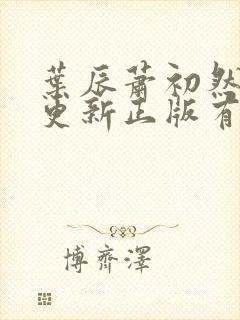 葉辰蕭初然
更新正版有
博齊澤